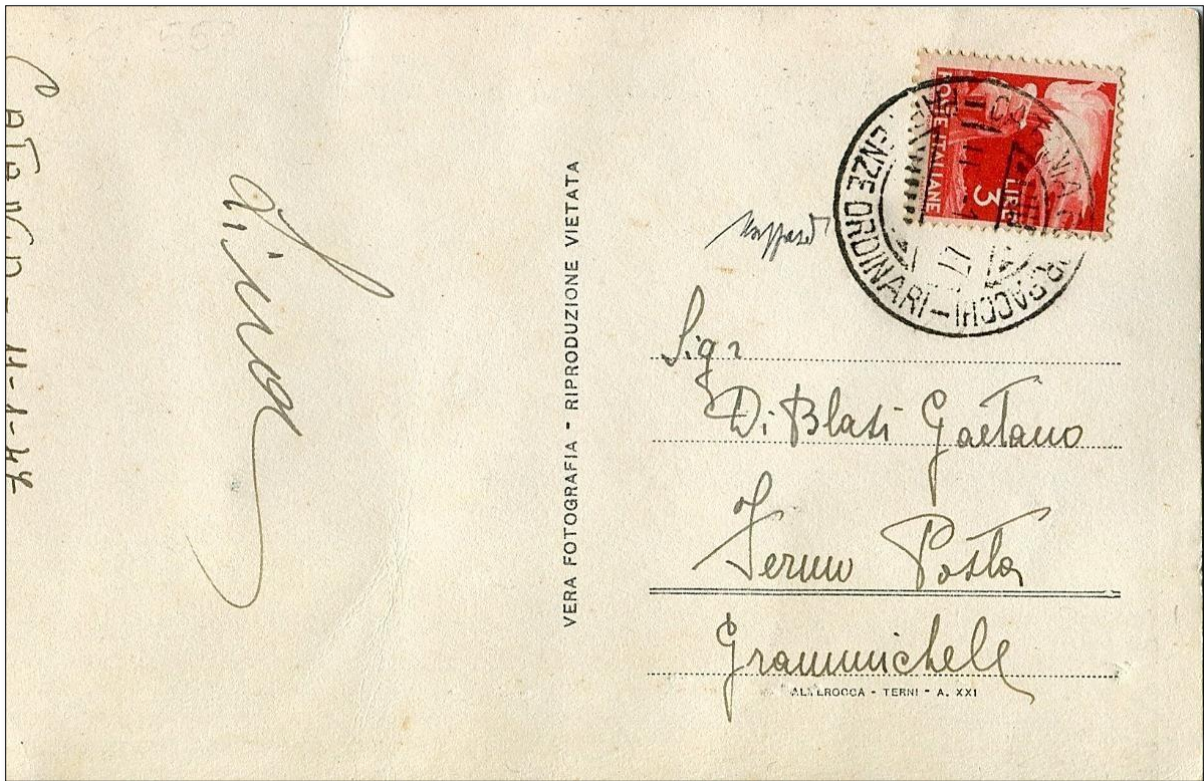 Catania - 11-1-47
Lina
VERA FOTOGRAFIA - RIPRODUZIONE VIETATA
POSTE ITALIANE
LIRE
3
CATANIA
PARTENZE ORDINARI -
Sigr
Di Blasi Gaetano
Fermo Posta
Grammichele
ALTEROCCA - TERNI - A. XXI